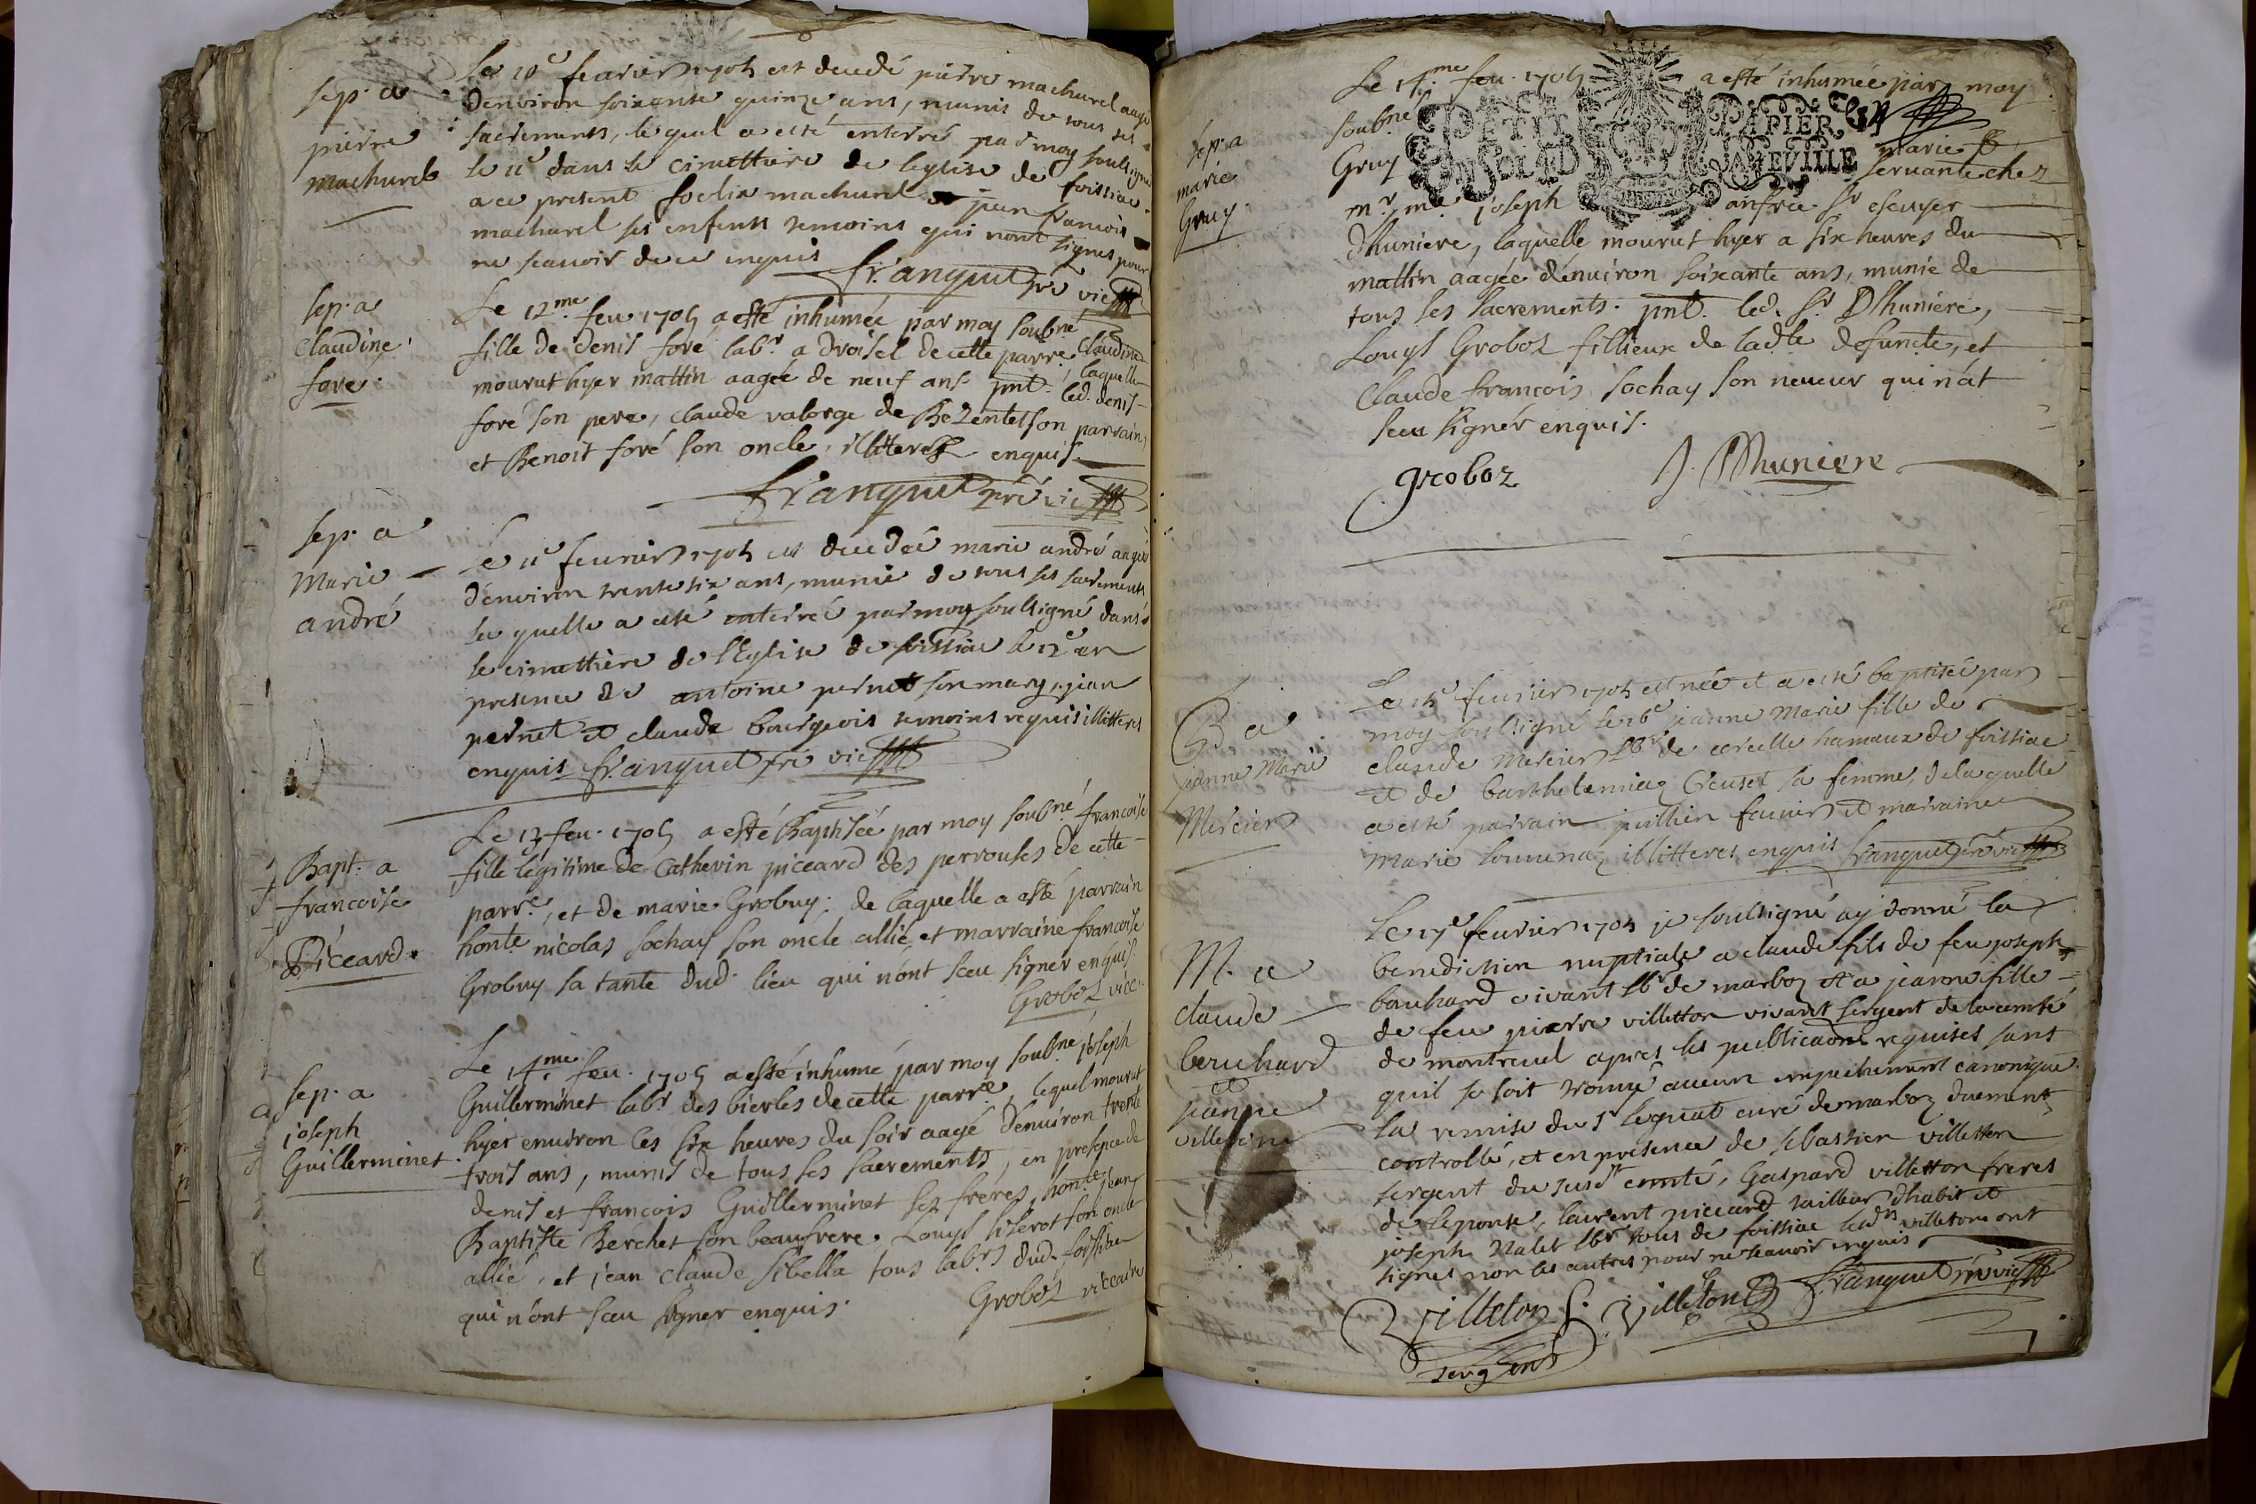 sep. a
pierre
machurel
Le 10e fevrier 1705 est decedé pierre machurel aagé
d'environ soixante quinze ans, munis de tous ses
sacrements, lequel a esté enterré par moy soubsigné
le 11e dans le cimettiere de l'eglise de foissiac
a ce present foelix machurel et jean francois
machurel ses enfents temoins qui n'ont signes pour
ne scavoir de ce enquis
franquet pre vic
sep. a
Claudine
foré.
Le 12me feu. 1705 a esté inhumée par moy soubné Claudine
fille de denis foré labr a droisel de cette parre, laquelle
mourut hyer mattin aagée de neuf ans pnt. led. denis
foré son pere, claude valorge de son parrain,
et Benoit foré son oncle, illitterez enquis.
franquet pre vic
sep. a
Marie
andré
Le 11e feurier 1705 est decedée marie andré aagée
d'environ trente six ans, munie de tous ses sacrements
la quelle a esté enterrée par moy soubsigné dans
le cimettiere de l'Eglise de foissiac le 12e en
presence de antoine pernet son mary, jean
pernet et claude bourgeois temoins requis illitteres
enquis franquet pre vic
Bapt. a
francoise
Piccard.
Le 13 feu. 1705 a esté Baptisée par moy soubné francoise
fille legitime de Cathevin piccard des perrouses de cette
parre, et de marie Grobuy: de laquelle a esté parrain
honte nicolas sochay son oncle allié, et marraine francoise
Grobuy sa tante dud. lieu qui n'ont sceu signer enquis.
Groboz vicc.
sep. a
joseph
Guillerminet
Le 14me feu. 1705 a esté inhumé par moy soubné joseph
Guillerminet labr des bierles de cette parre, lequel mourut
hyer environ les six heures du soir aagé d'enuiron trente
trois ans, munis de tous ses sacrements, en presence de
denis et francois Guillerminet ses freres, honte jean
Baptiste Berchet son beaufrere, Louys liserot son oncle
allié, et jean claude sibella tous labrs dud. foissiac
qui n'ont sceu signer enquis.
Groboz viccaire
sep. a
marie
Gruy.
Le 14me feu. 1705 a esté inhumée par moy
soubné marie
Gruy servante chez
PETIT PAPIER
mr me joseph anfrie sr escuyer
d'huniere, laquelle mourut hyer a six heures du
mattin aagée d'enuiron soixante ans, munie de
tous ses sacrements. pnt. led. sr D'huniere,
Louys Groboz fillieux de ladte defuncte, et
Claude francois sochay son neueur qui n'at
sceu signer enquis.
groboz J. Dhuniere
B. a
jeanne Marie
Mercier
Le 15e feurier 1705 est née et a esté baptisée par
moy soubsigné le 16e jeanne Marie fille de
claude Mercier lbr de cercelle hameaux de foissiac
et de barthelemiaz Creuset sa femme, de laquelle
a esté parrain jullien feurier et marraine
Marie illitteres enquis franquet pre vic
M. a
claude
bouchard
et
jeanne
villetton
Le 17e feurier 1705 je soubsigné ay donné la
benediction nuptiale a claude fils de feu joseph
bouchard vivant lbr de marboz et a jeanne fille
de feu pierre villetton vivant sergent de la comté
de montreuel apres les publicaons requises sans
quil se soit trouvé aucun empechement canonique.
la remise du sr lequat curé de marboz duement
controllé, et en presence de sebastien villetton
sergent du susdt comté, Gaspard villetton freres
de l'epouse, laurent piccard tailleur d'habit et
joseph Nalet lbr tous de foissiac lesdts villettons ont
signes non les autres pour ne scavoir enquis
Villeton S. Villeton G franquet pre vic
sergent